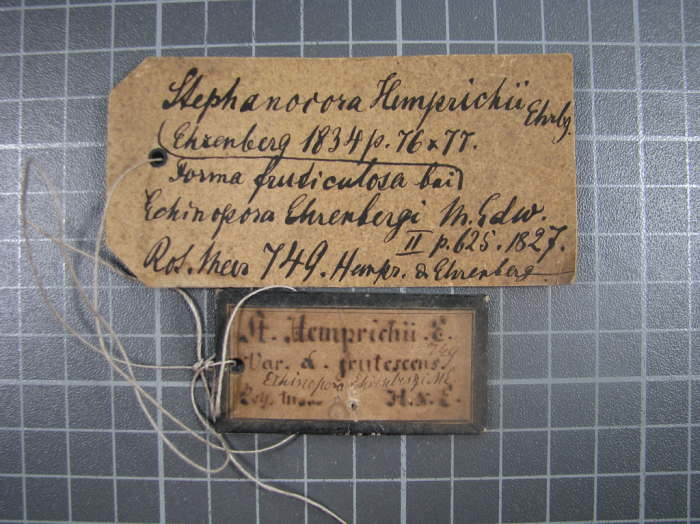 Stephanocora Hemprichii Ehrbg.
(Ehrenberg 1834 p. 76 & 77.
Forma fruticulosa bei)
Echinopora Ehrenbergi M. Edw.
II p. 625. 1827.
Rot. Meer 749. Hempr. & Ehrenberg.
St. Hemprichii. E.
Var. α. frutescens.
749
Echinopora Ehrenbergi. ME.
H. & E.